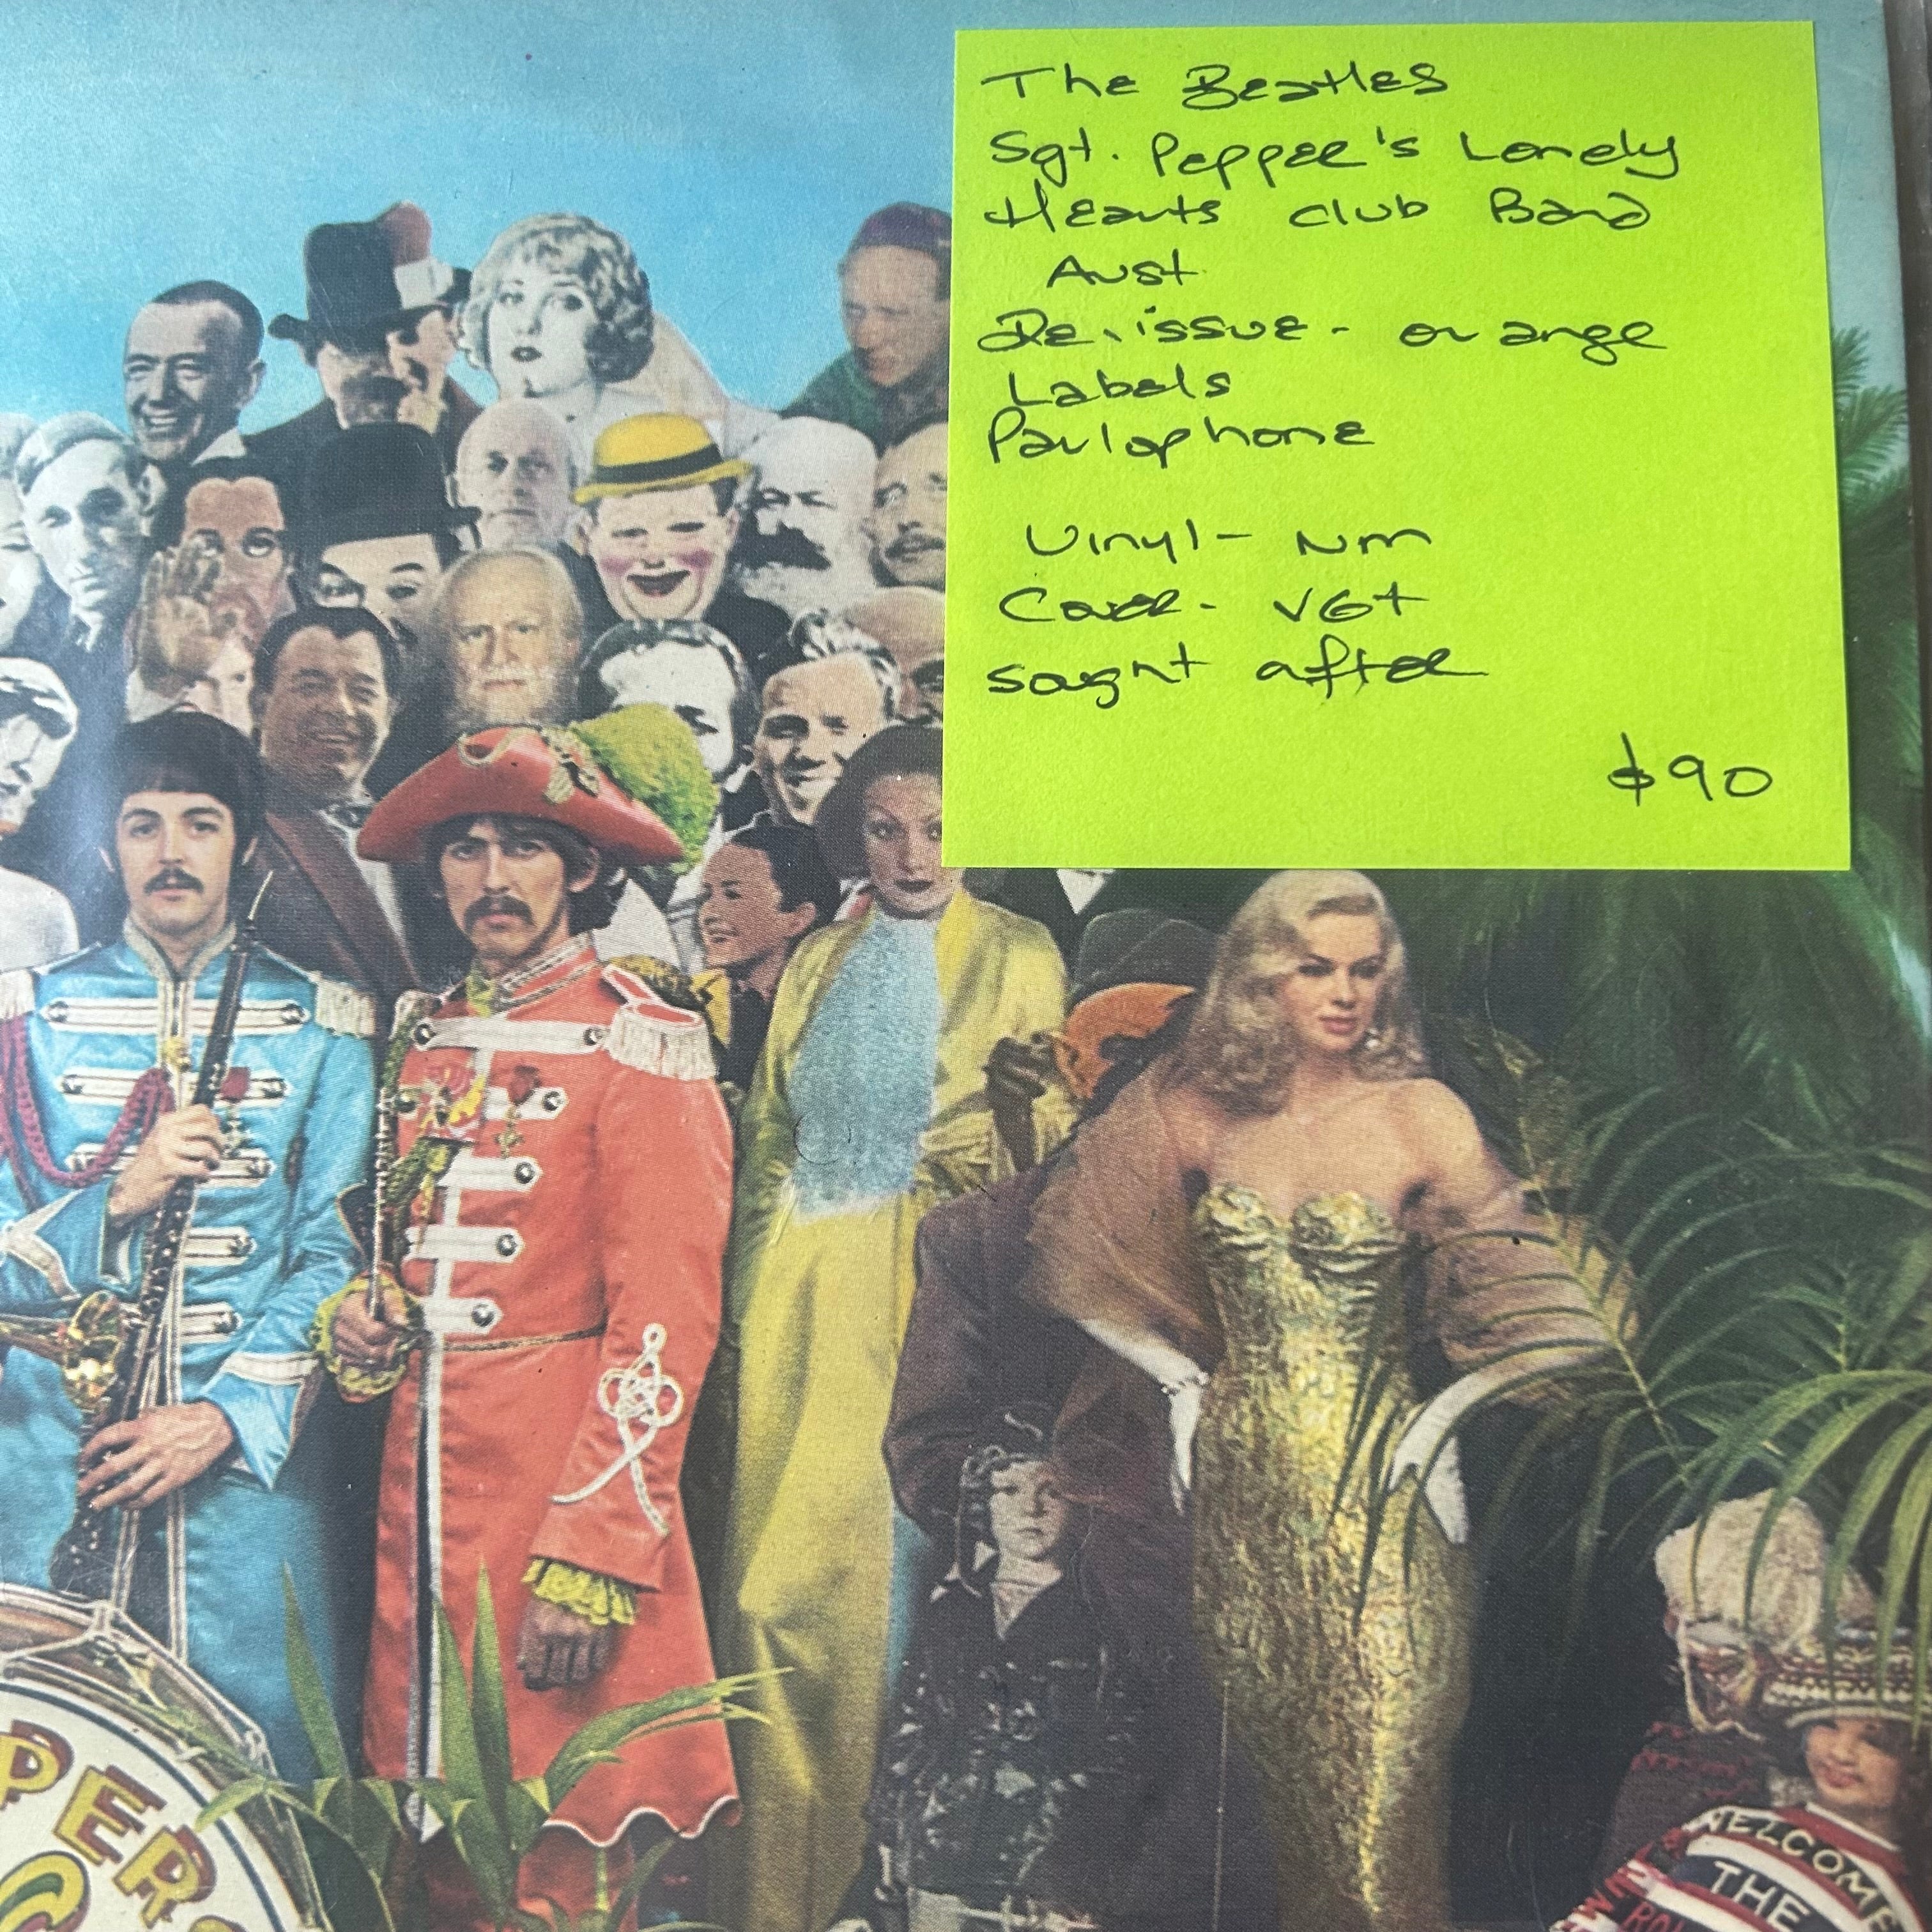 The Beatles
Sgt. Pepper's Lonely
Hearts club Band
Aust
Re-issue - orange
Labels
Parlophone
Vinyl - NM
Cover - VG+
sought after
$90
PERS
WELCOME
THE